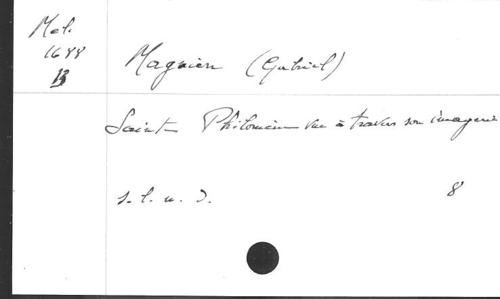 Mel.
1688
B
Magnien (Gabriel)
Saint Philomène vue à travers son imagerie
s. l. n. d.
8